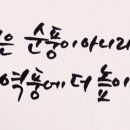 은 순풍이 아니라
역풍에 더 높이